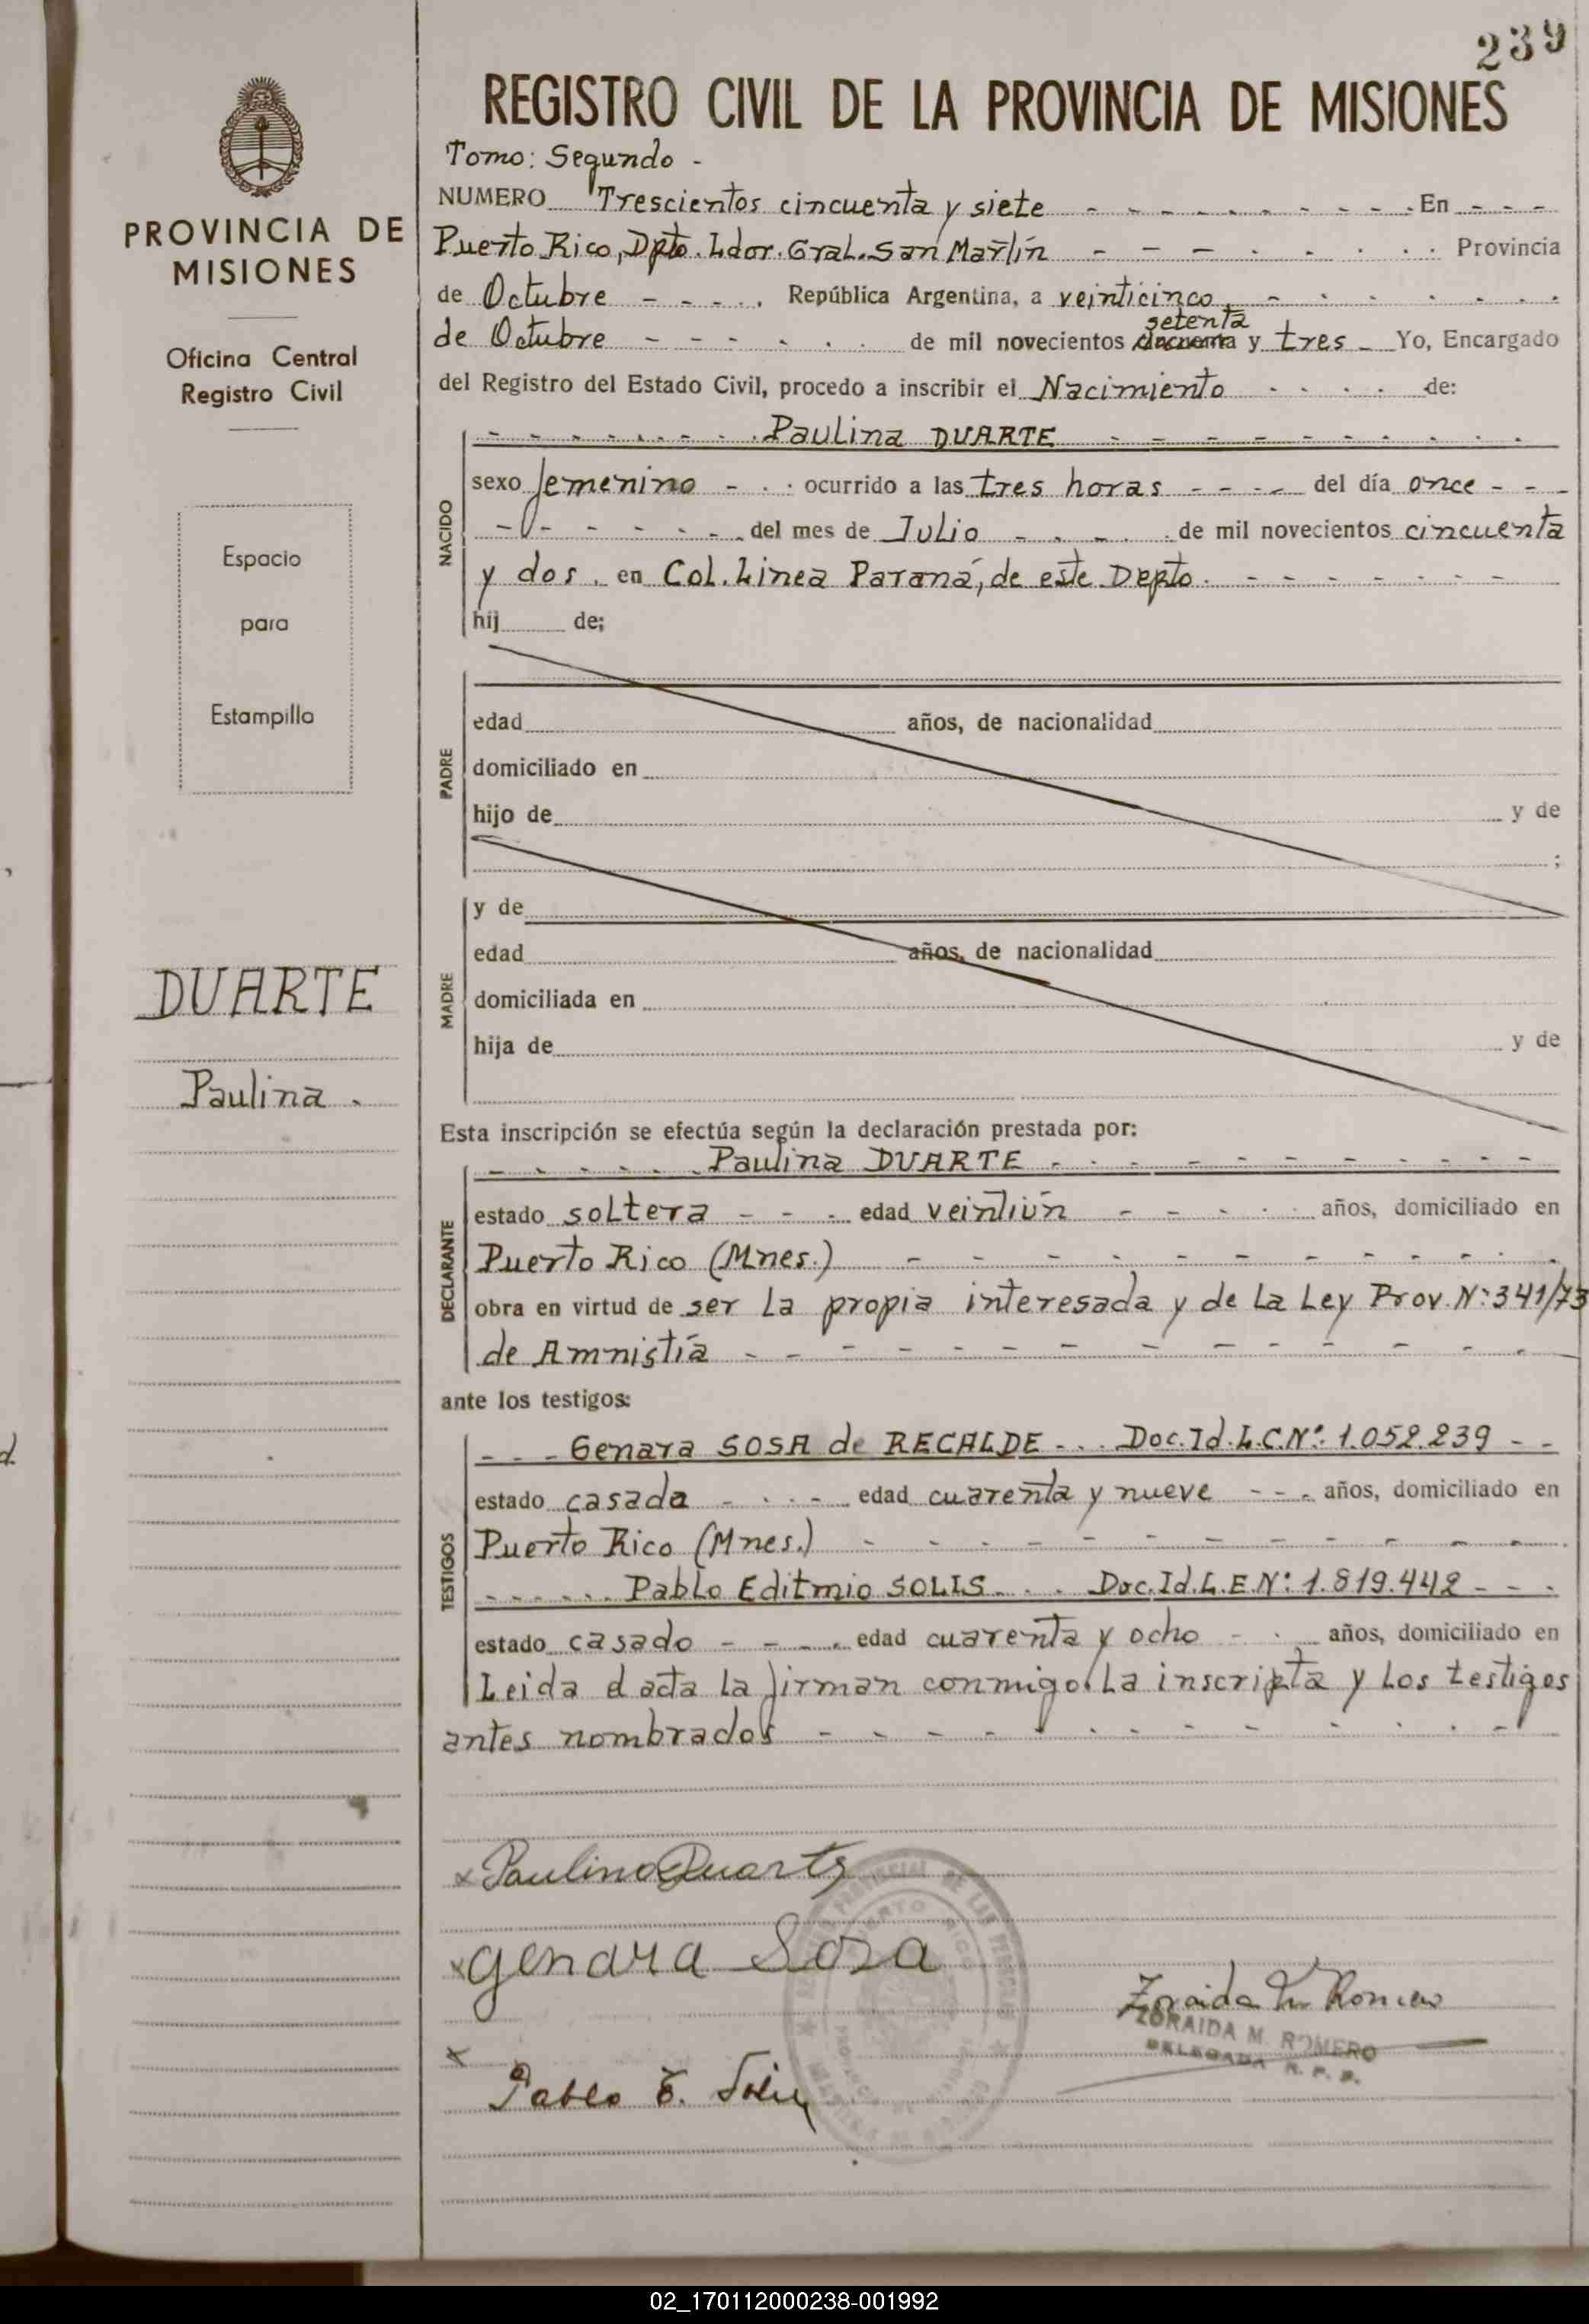 239
REGISTRO CIVIL DE LA PROVINCIA DE MISIONES
PROVINCIA DE
MISIONES
Oficina Central
Registro Civil
Espacio
para
Estampilla
DUARTE
Paulina.
Tomo: Segundo -
NUMERO Trescientos cincuenta y siete - - - En - - -
Puerto Rico, Dpto. Ldor. Gral. San Martín - - - Provincia
de Octubre - - - República Argentina, a veinticinco, - - -
setenta
de Octubre - - - de mil novecientos cincuenta y tres - Yo, Encargado
del Registro del Estado Civil, procedo a inscribir el Nacimiento - - - de:
NACIDO
- - - Paulina DUARTE - - -
sexo femenino - - - ocurrido a las tres horas - - - del día once - - -
- - - del mes de Julio - - - de mil novecientos cincuenta
y dos, en Col. Linea Paraná, de este Depto. - - -
hij de;
PADRE
edad años, de nacionalidad
domiciliado en
hijo de y de
;
MADRE
y de
edad años, de nacionalidad
domiciliada en
hija de y de
Esta inscripción se efectúa según la declaración prestada por:
DECLARANTE
- - - Paulina DUARTE - - -
estado soltera - - - edad veintiún - - - años, domiciliado en
Puerto Rico (Mnes.) - - -
obra en virtud de ser la propia interesada y de la Ley Prov. N: 341/73
de Amnistía - - -
ante los testigos:
TESTIGOS
- - - Genara SOSA de RECALDE - - - Doc. Id. L.C. N°: 1.052.239 - -
estado casada - - - edad cuarenta y nueve - - - años, domiciliado en
Puerto Rico (Mnes.) - - -
- - - Pablo Editmio SOLIS - - - Doc. Id. L.E N: 1.819.442 - - -
estado casado - - - edad cuarenta y ocho - - años, domiciliado en
Leida el acta la firman conmigo la inscripta y los testigos
antes nombrados - - -
x Paulina Duarte
x genara Sosa
Zoraida M Romero
ZORAIDA M. ROMERO
DELEGADA R. P. P.
x
Pablo E. Solis
02_170112000238-001992